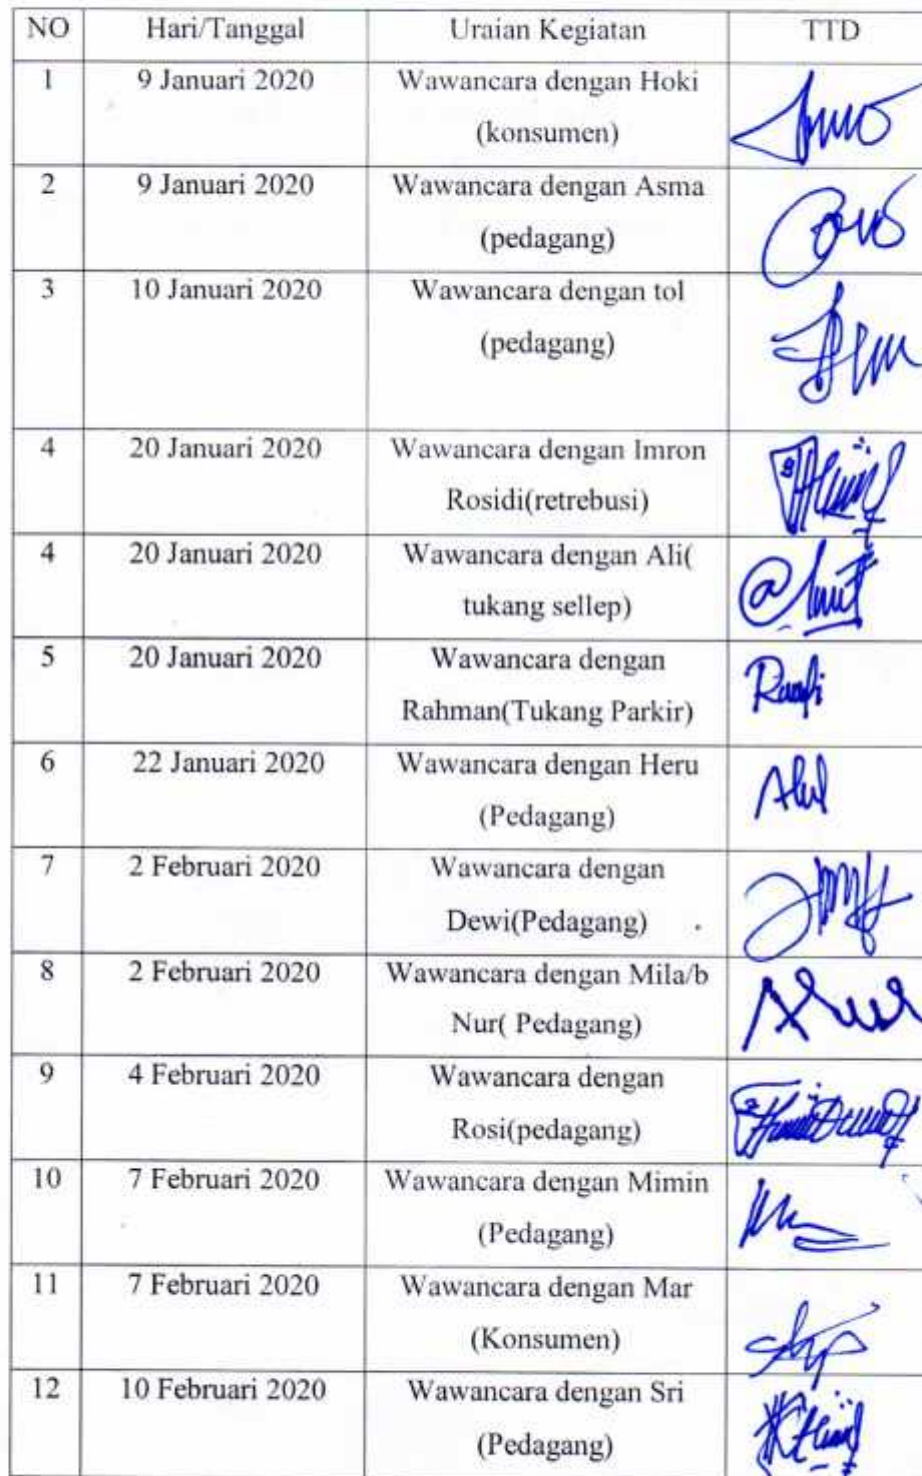 NO Hari/Tanggal Uraian Kegiatan TTD
1 9 Januari 2020 Wawancara dengan Hoki
(konsumen)
2 9 Januari 2020 Wawancara dengan Asma
(pedagang)
3 10 Januari 2020 Wawancara dengan tol
(pedagang)
4 20 Januari 2020 Wawancara dengan Imron
Rosidi(retrebusi)
4 20 Januari 2020 Wawancara dengan Ali(
tukang sellep)
5 20 Januari 2020 Wawancara dengan
Rahman(Tukang Parkir)
6 22 Januari 2020 Wawancara dengan Heru
(Pedagang)
7 2 Februari 2020 Wawancara dengan
Dewi(Pedagang)
8 2 Februari 2020 Wawancara dengan Mila/b
Nur( Pedagang)
9 4 Februari 2020 Wawancara dengan
Rosi(pedagang)
10 7 Februari 2020 Wawancara dengan Mimin
(Pedagang)
11 7 Februari 2020 Wawancara dengan Mar
(Konsumen)
12 10 Februari 2020 Wawancara dengan Sri
(Pedagang)